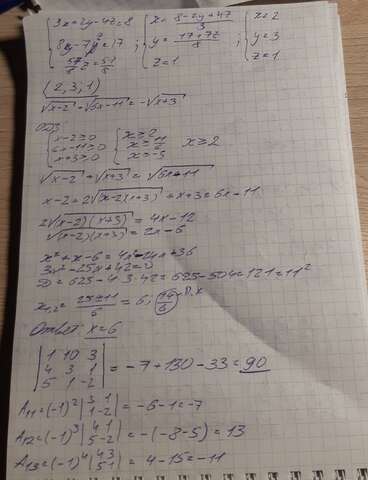 {3x+2y-4z=8 {x=(8-2y+4z)/3 {x=2
{8y-7z=17 ; {y=(17+7z)/8 ; {y=3
{57/8 z=57/8 {z=1 {z=1
(2,3,1)
√(x-2) - √(6x-11) = -√(x+3)
ОДЗ
{x-2≥0 {x≥2
{6x-11≥0 {x≥11/6 x≥2
{x+3≥0 {x≥-3
√(x-2) + √(x+3) = √(6x-11)
x-2+2√((x-2)(x+3))+x+3=6x-11
2√((x-2)(x+3)) = 4x-12
√((x-2)(x+3)) = 2x-6
x²+x-6=4x²-24x+36
3x²-25x+42=0
D=625-4·3·42=625-504=121=11²
x₁,₂=(25±11)/6=6; 14/6
Ответ: x=6
|1 10 3|
|4 3 1| = -7+130-33=90
|5 1 -2|
A₁₁=(-1)²|3 1; 1 -2|=-6-1=-7
A₁₂=(-1)³|4 1; 5 -2|=-(-8-5)=13
A₁₃=(-1)⁴|4 3; 5 1|=4-15=-11